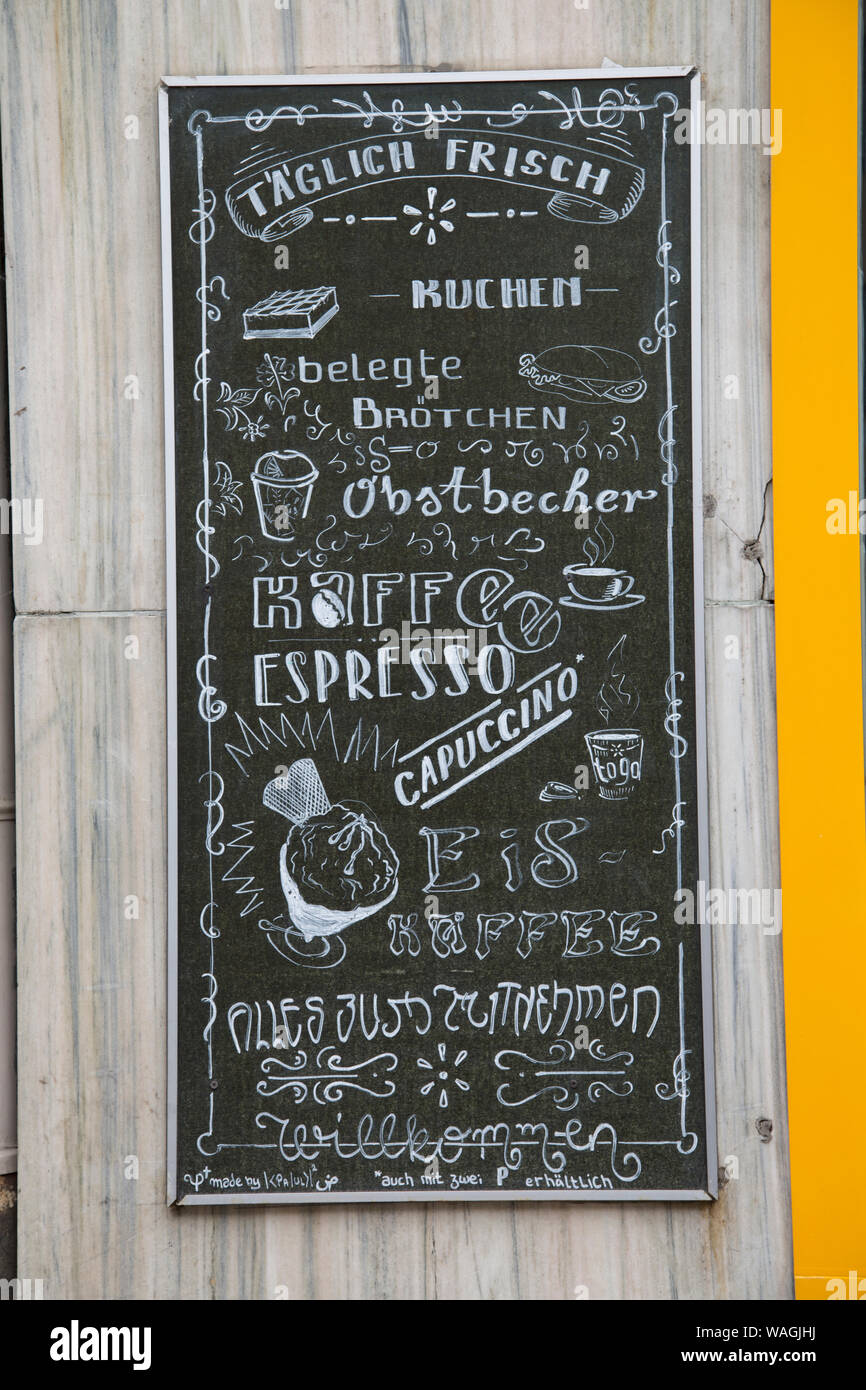 TÄGLICH FRISCH
KUCHEN
belegte
BRÖTCHEN
Obstbecher
KAFFEE
ESPRESSO
CAPUCCINO*
togo
EiS-
KAFFEE
ALLES ZUM MITNEHMEN
Willkommen
made by
*auch mit zwei P erhältlich
alamy
Image ID: WAGJHJ
www.alamy.com